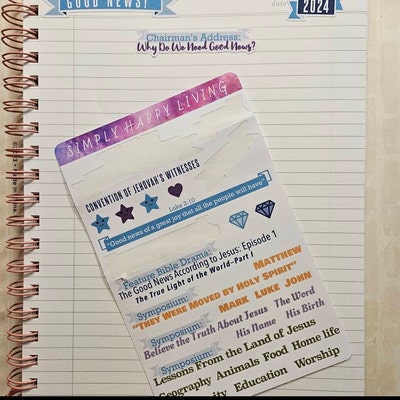 GOOD NEWS!
date
2024
Chairman's Address:
Why Do We Need Good News?
SIMPLY HAPPY LIVING
CONVENTION OF JEHOVAH'S WITNESSES
Luke 2:10
"Good news of a great joy that all the people will have"
Feature Bible Drama:
The Good News According to Jesus: Episode 1
The True Light of the World-Part I
Symposium:
MATTHEW
"THEY WERE MOVED BY HOLY SPIRIT"
MARK LUKE JOHN
Symposium:
Believe the Truth About Jesus The Word
His Name His Birth
Symposium:
Lessons From the Land of Jesus
Geography Animals Food Home life
Education Worship